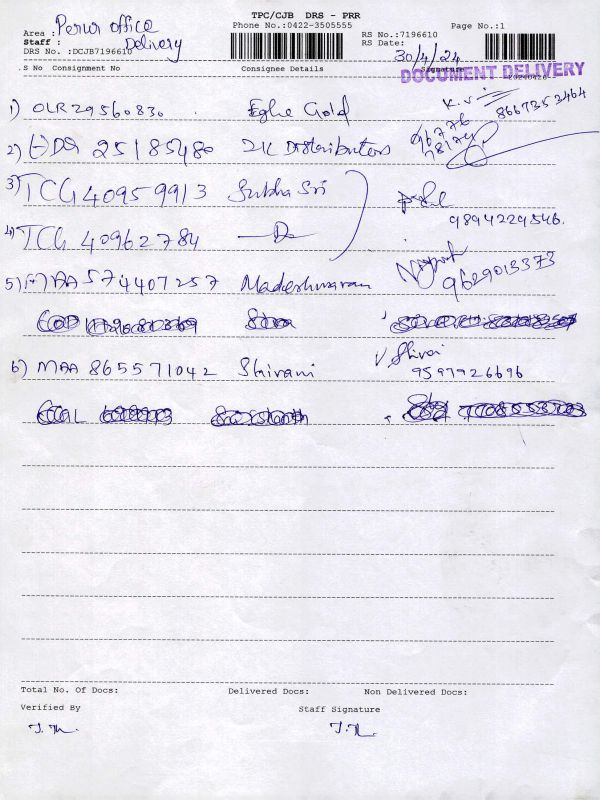 TPC/CJB DRS - PRR
Phone No.:0422-3505555
Page No.:1
Area : Perur office
Staff : Delivery
DRS No. :DCJB7196610
RS No.:7196610
RS Date:
30/4/24
.S No Consignment No Consignee Details Signature
DOCUMENT DELIVERY
20240426
1) OLR 29560830 Eghe Gold K.V 8667353464
2) DQ 25185480 2K Distributors 96776 78174
3) TCG 40959913 Subha Sri 9894229546.
4) TCG 40962784 —D—
5) AA 574407257 Madeshwaran 9629013373
6) MAA 865571042 Shivani V. Shivai 9597926696
Total No. Of Docs: Delivered Docs: Non Delivered Docs:
Verified By Staff Signature